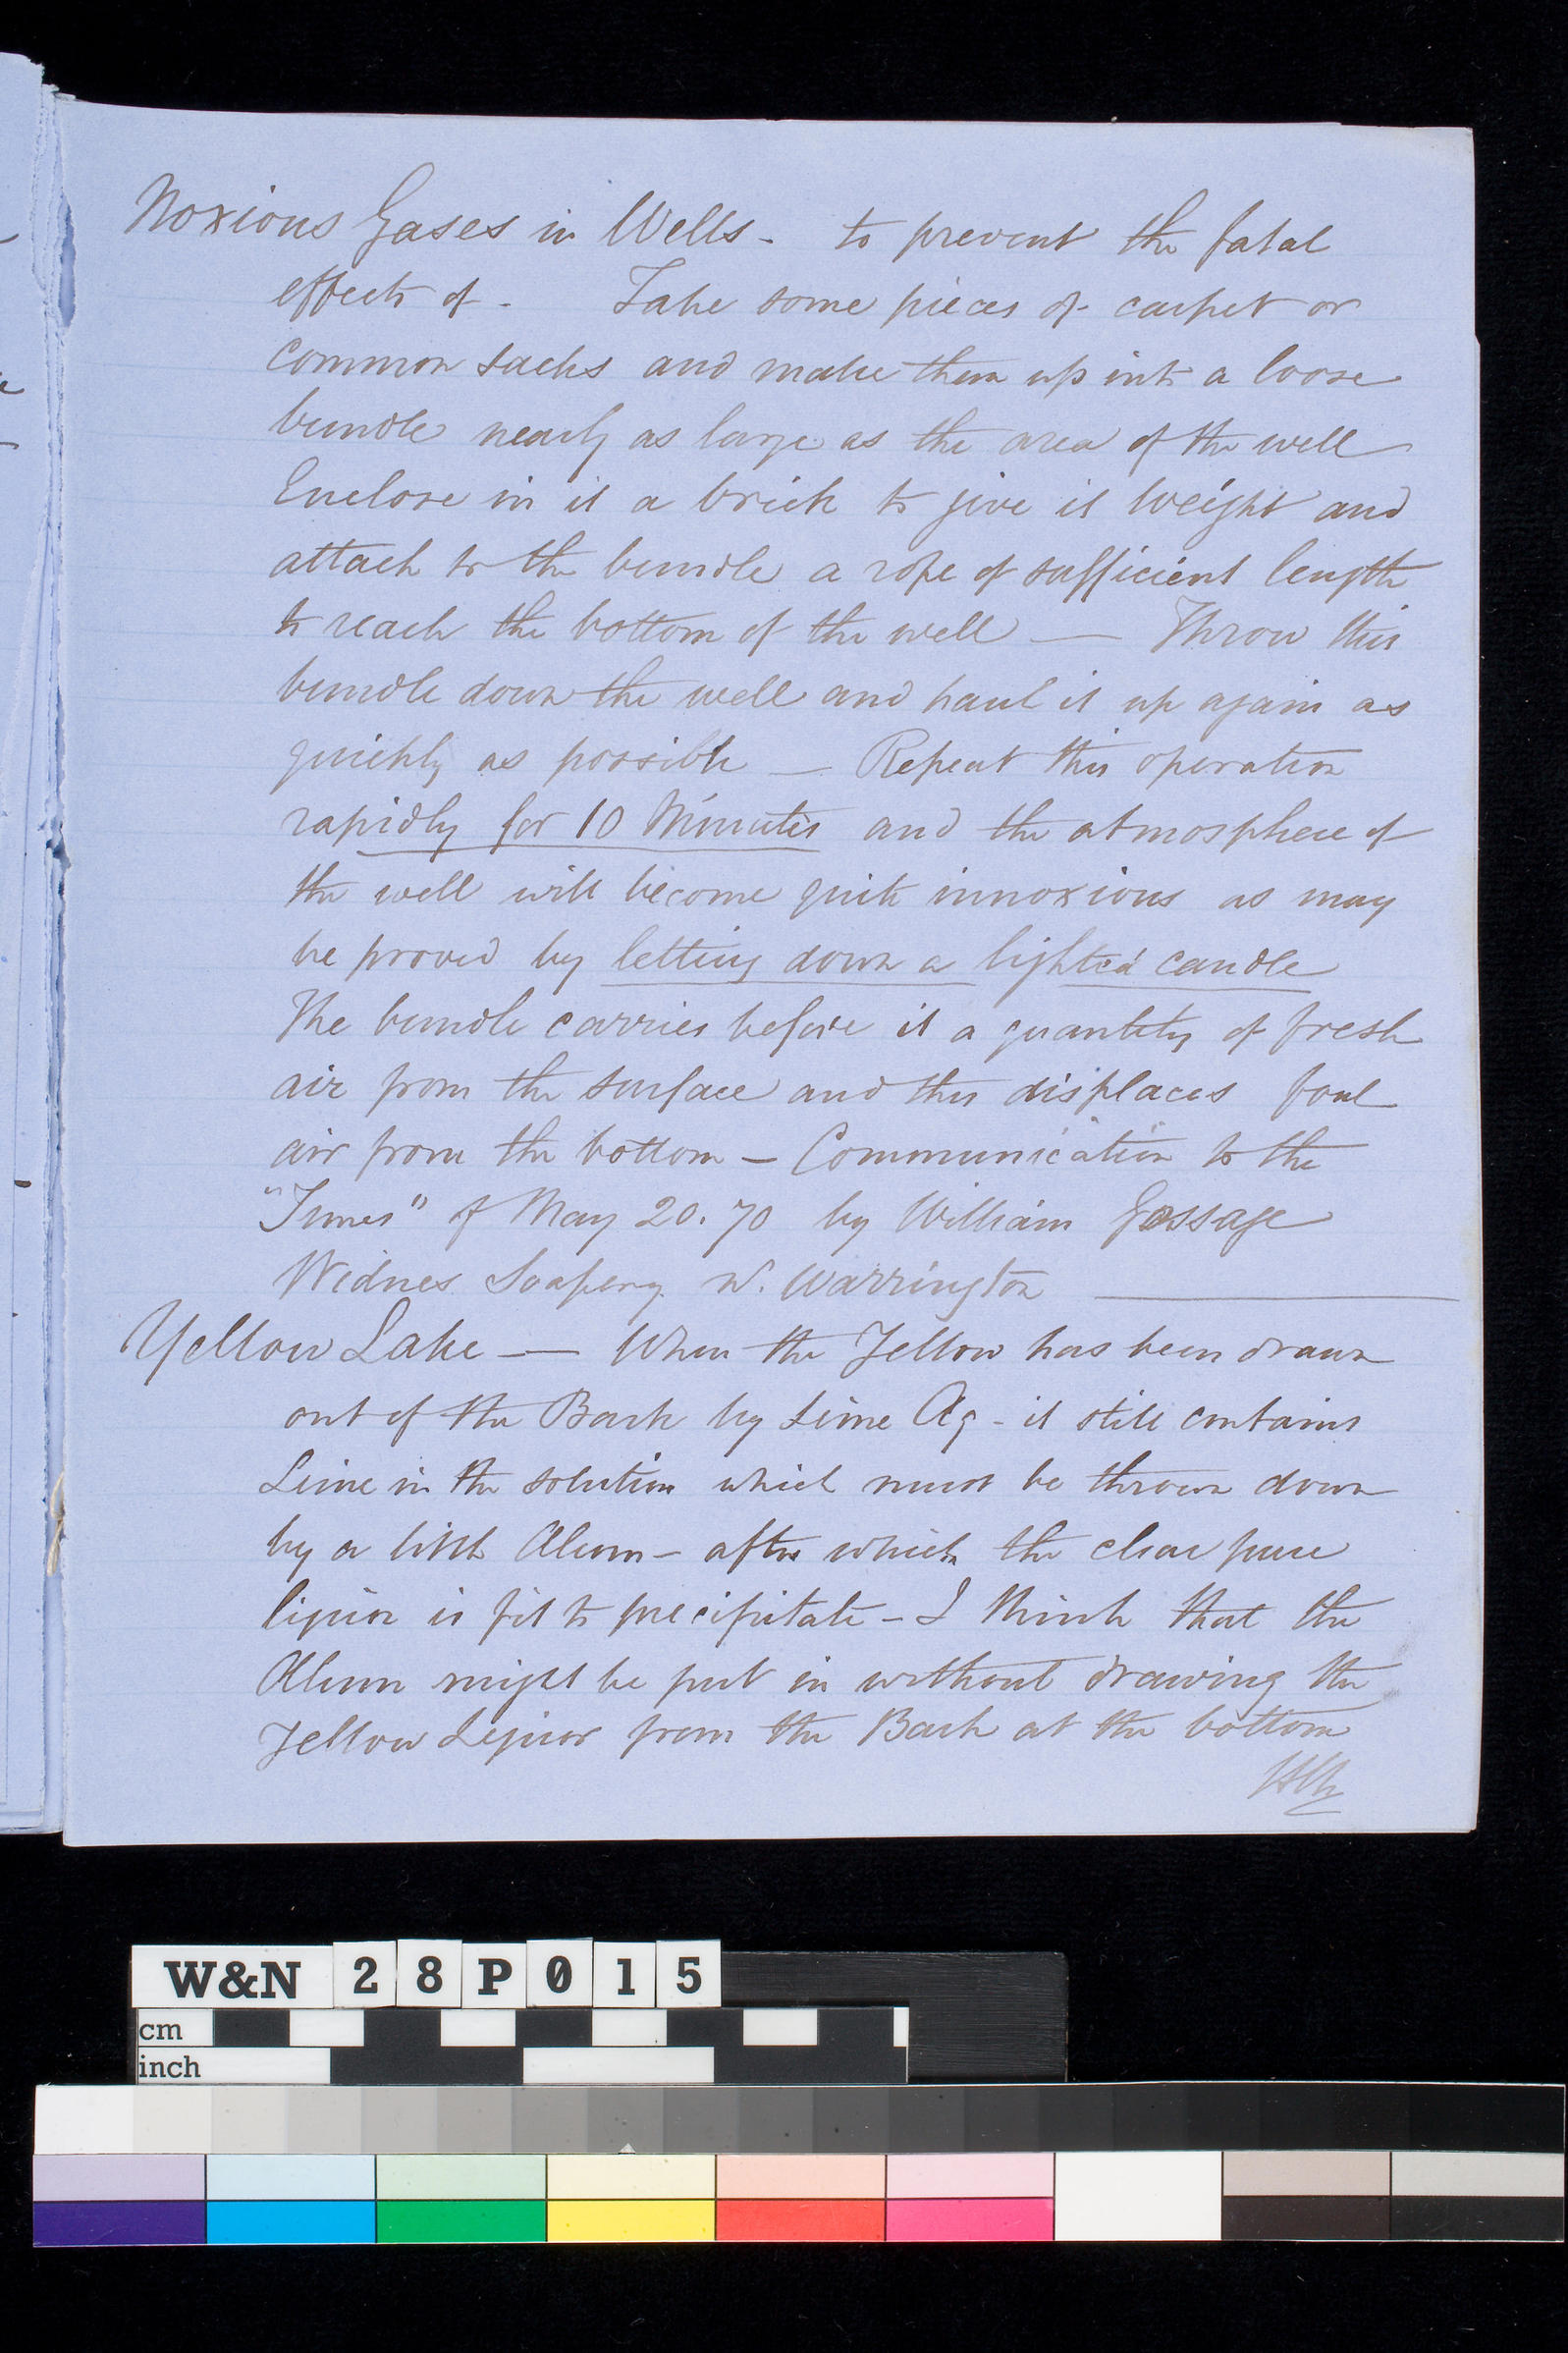 Noxious Gases in Wells - to prevent the fatal
effects of - Take some pieces of carpet or
common sacks and make them up into a loose
bundle nearly as large as the area of the well
Enclose in it a brick to give it weight and
attach to the bundle a rope of sufficient length
to reach the bottom of the well — Throw this
bundle down the well and haul it up again as
quickly as possible — Repeat this operation
rapidly for 10 Minutes and the atmosphere of
the well will become quite innoxious as may
be proved by letting down a lighted candle
The bundle carries before it a quantity of fresh
air from the surface and this displaces foul
air from the bottom — Communication to the
"Times" of May 20. 70 by William Gossage
Widnes Soapery W. Warrington
Yellow Lake — When the Yellow has been drawn
out of the Bark by Lime Aq - it still contains
Lime in the solution which must be thrown down
by a little Alum - after which the clear pure
liquor is fit to precipitate - I think that the
Alum might be put in without drawing the
Yellow Liquor from the Bark at the bottom
W&N 28P015
cm
inch